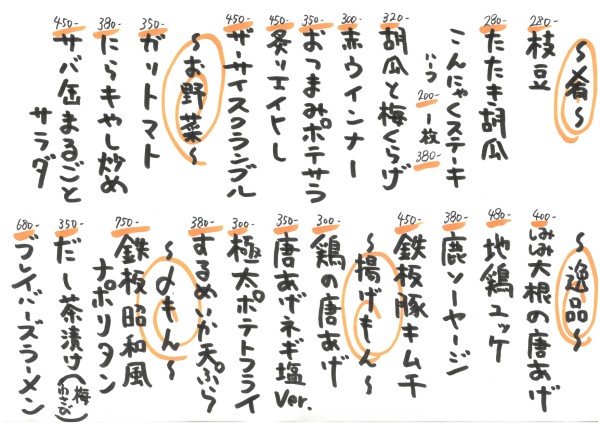 ～肴～
280-
枝豆
280-
たたき胡瓜
こんにゃくステーキ
ハーフ 200- 一枚 380-
320
胡瓜と梅くらげ
300-
赤ウインナー
350-
おつまみポテサラ
450-
炙りエイヒレ
450-
ザーサイスクランブル
～お野菜～
350-
ガリトマト
380-
にらモヤし炒め
450-
サバ缶まるごと
サラダ
～逸品～
400-
しみしみ大根の唐あげ
480-
地鶏ユッケ
380-
鹿ソーセージ
450-
鉄板豚キムチ
～揚げもん～
300
鶏の唐あげ
350
唐あげネギ塩ver.
300-
極太ポテトフライ
380
するめいか天ぷら
～〆もん～
750-
鉄板昭和風
ナポリタン
350-
だし茶漬け(梅 わさび)
680-
ブレイバーズラーメン